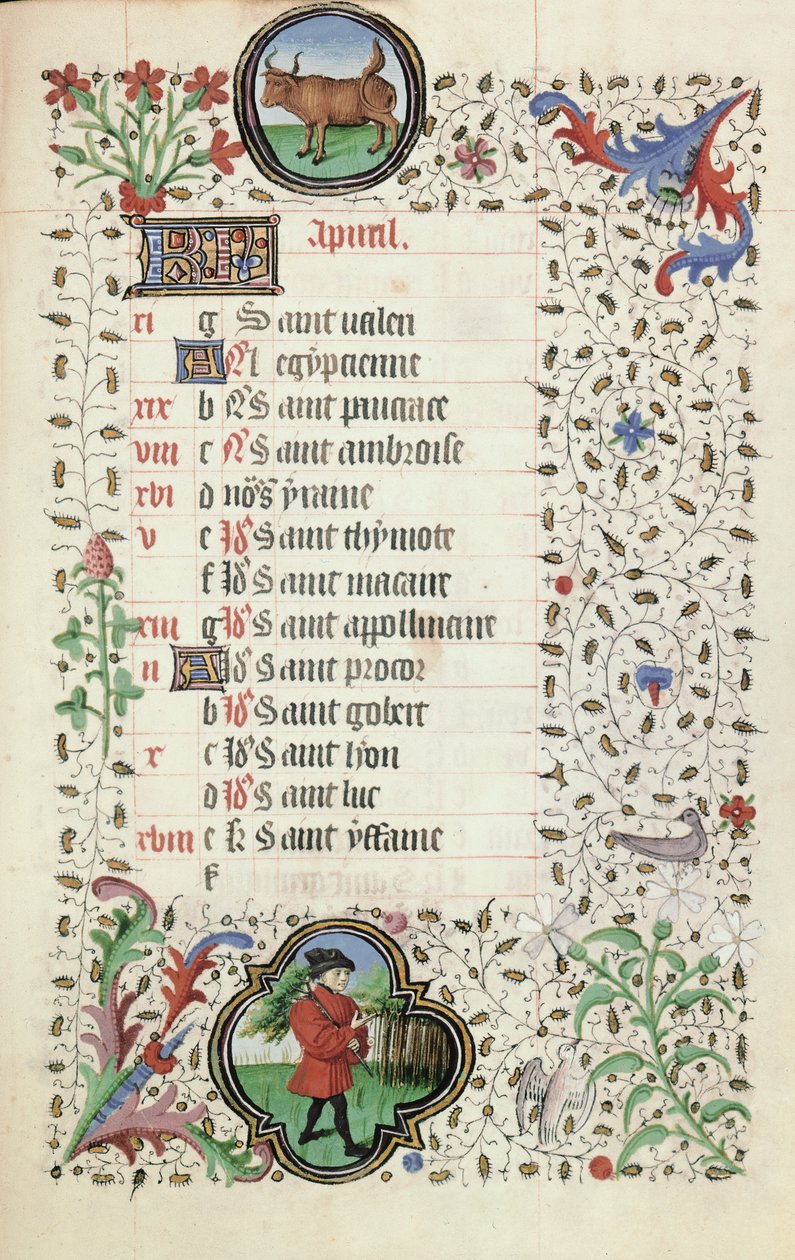 KL Apuril.
xi g Saint ualeri
A N egẏpcienne
xix b N Saint pancrace
viii c N Saint ambroise
xvi d noẽs ẏraine
v e Id Saint thẏmote
f Id Saint macaire
xiii g Id Saint appollinaire
ii A Id Saint procor
b Id Saint gobert
x c Id Saint lẏon
d Id Saint luc
xviii e k Saint ẏffaine
f